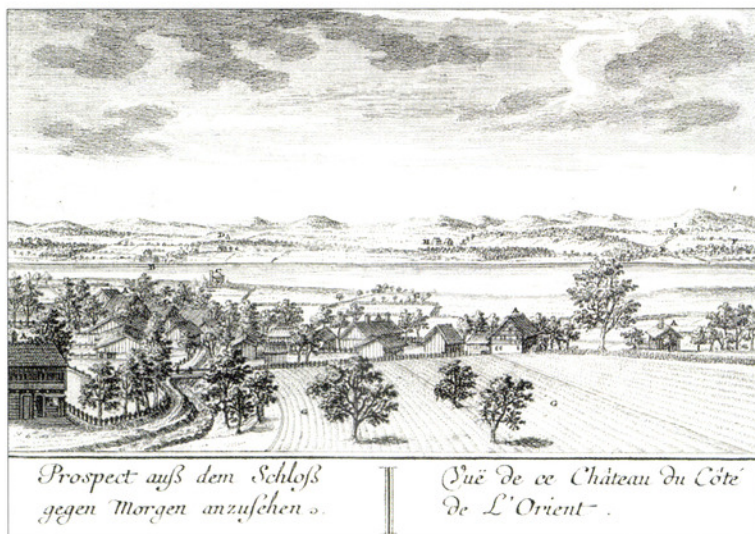 Prospect auß dem Schloß
gegen Morgen anzusehen.
Vuë de ce Château du Côté
de L'Orient.